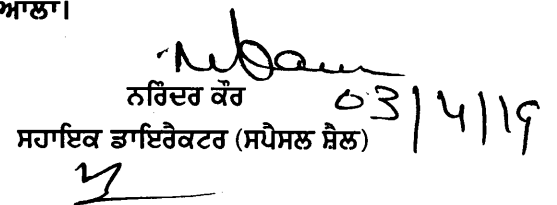 ਆਲਾ।
ਨਰਿੰਦਰ ਕੌਰ
03/4/19
ਸਹਾਇਕ ਡਾਇਰੈਕਟਰ (ਸਪੈਸਲ ਸ਼ੈਲ)